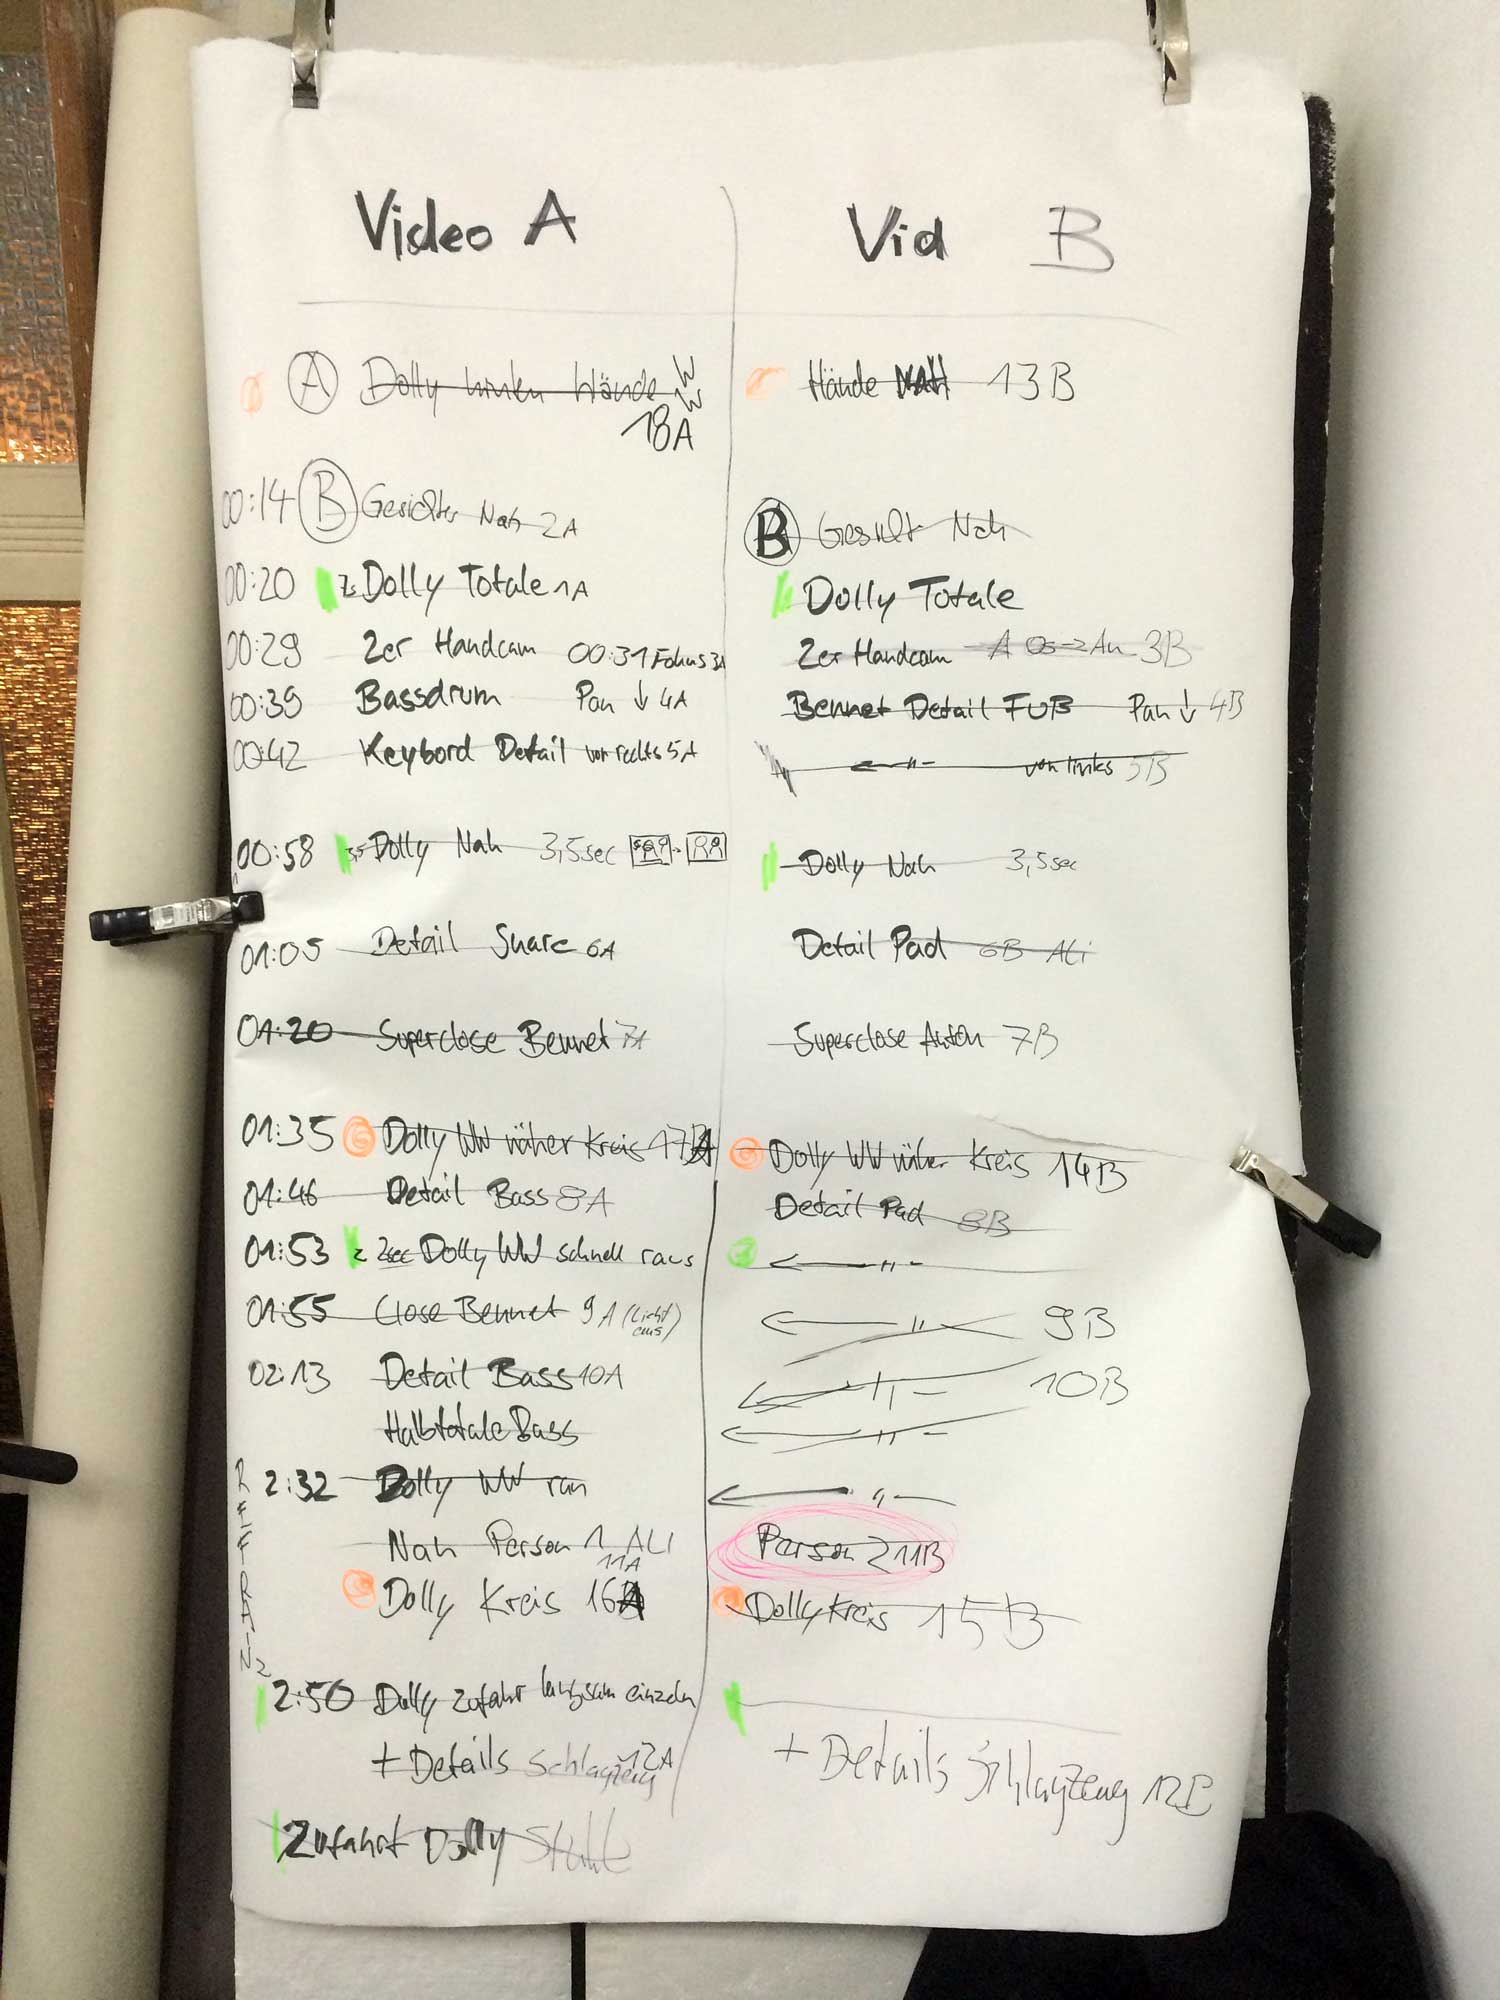 Video A Vid B
A Dolly hinten Hände WW 18A Hände NAH 13B
00:14 B Gesichter Nah 2A B Gesicht Nah
00:20 Dolly Totale 1A Dolly Totale
00:29 2er Handcam 00:31 Fokus 3A 2er Handcam 3B
00:39 Bassdrum Pan ↓ 4A Bennet Detail FUß Pan ↓ 4B
00:42 Keybord Detail von rechts 5A ← " – von links 5B
00:58 3,5 Dolly Nah 3,5sec Dolly Nah 3,5sec
01:05 Detail Snare 6A Detail Pad 6B ALi
01:20 Superclose Bennet 7A Superclose Anton 7B
01:35 Dolly WW näher Kreis 17A Dolly WW näher Kreis 14B
01:46 Detail Bass 8A Detail Pad 8B
01:53 2 2sec Dolly WW schnell raus ← " –
01:55 Close Bennet 9A (Licht aus) ← " 9B
02:13 Detail Bass 10A ← " – 10B
Halbtotale Bass ← " –
2:32 Dolly WW ran ← " –
Nah Person 1 ALI 11A Person 2 11B
Dolly Kreis 16A Dolly Kreis 15B
REFRAIN 2
2:50 Dolly Zufahrt langsam einzeln
+ Details Schlagzeug 12A + Details Schlagzeug 12B
Zufahrt Dolly